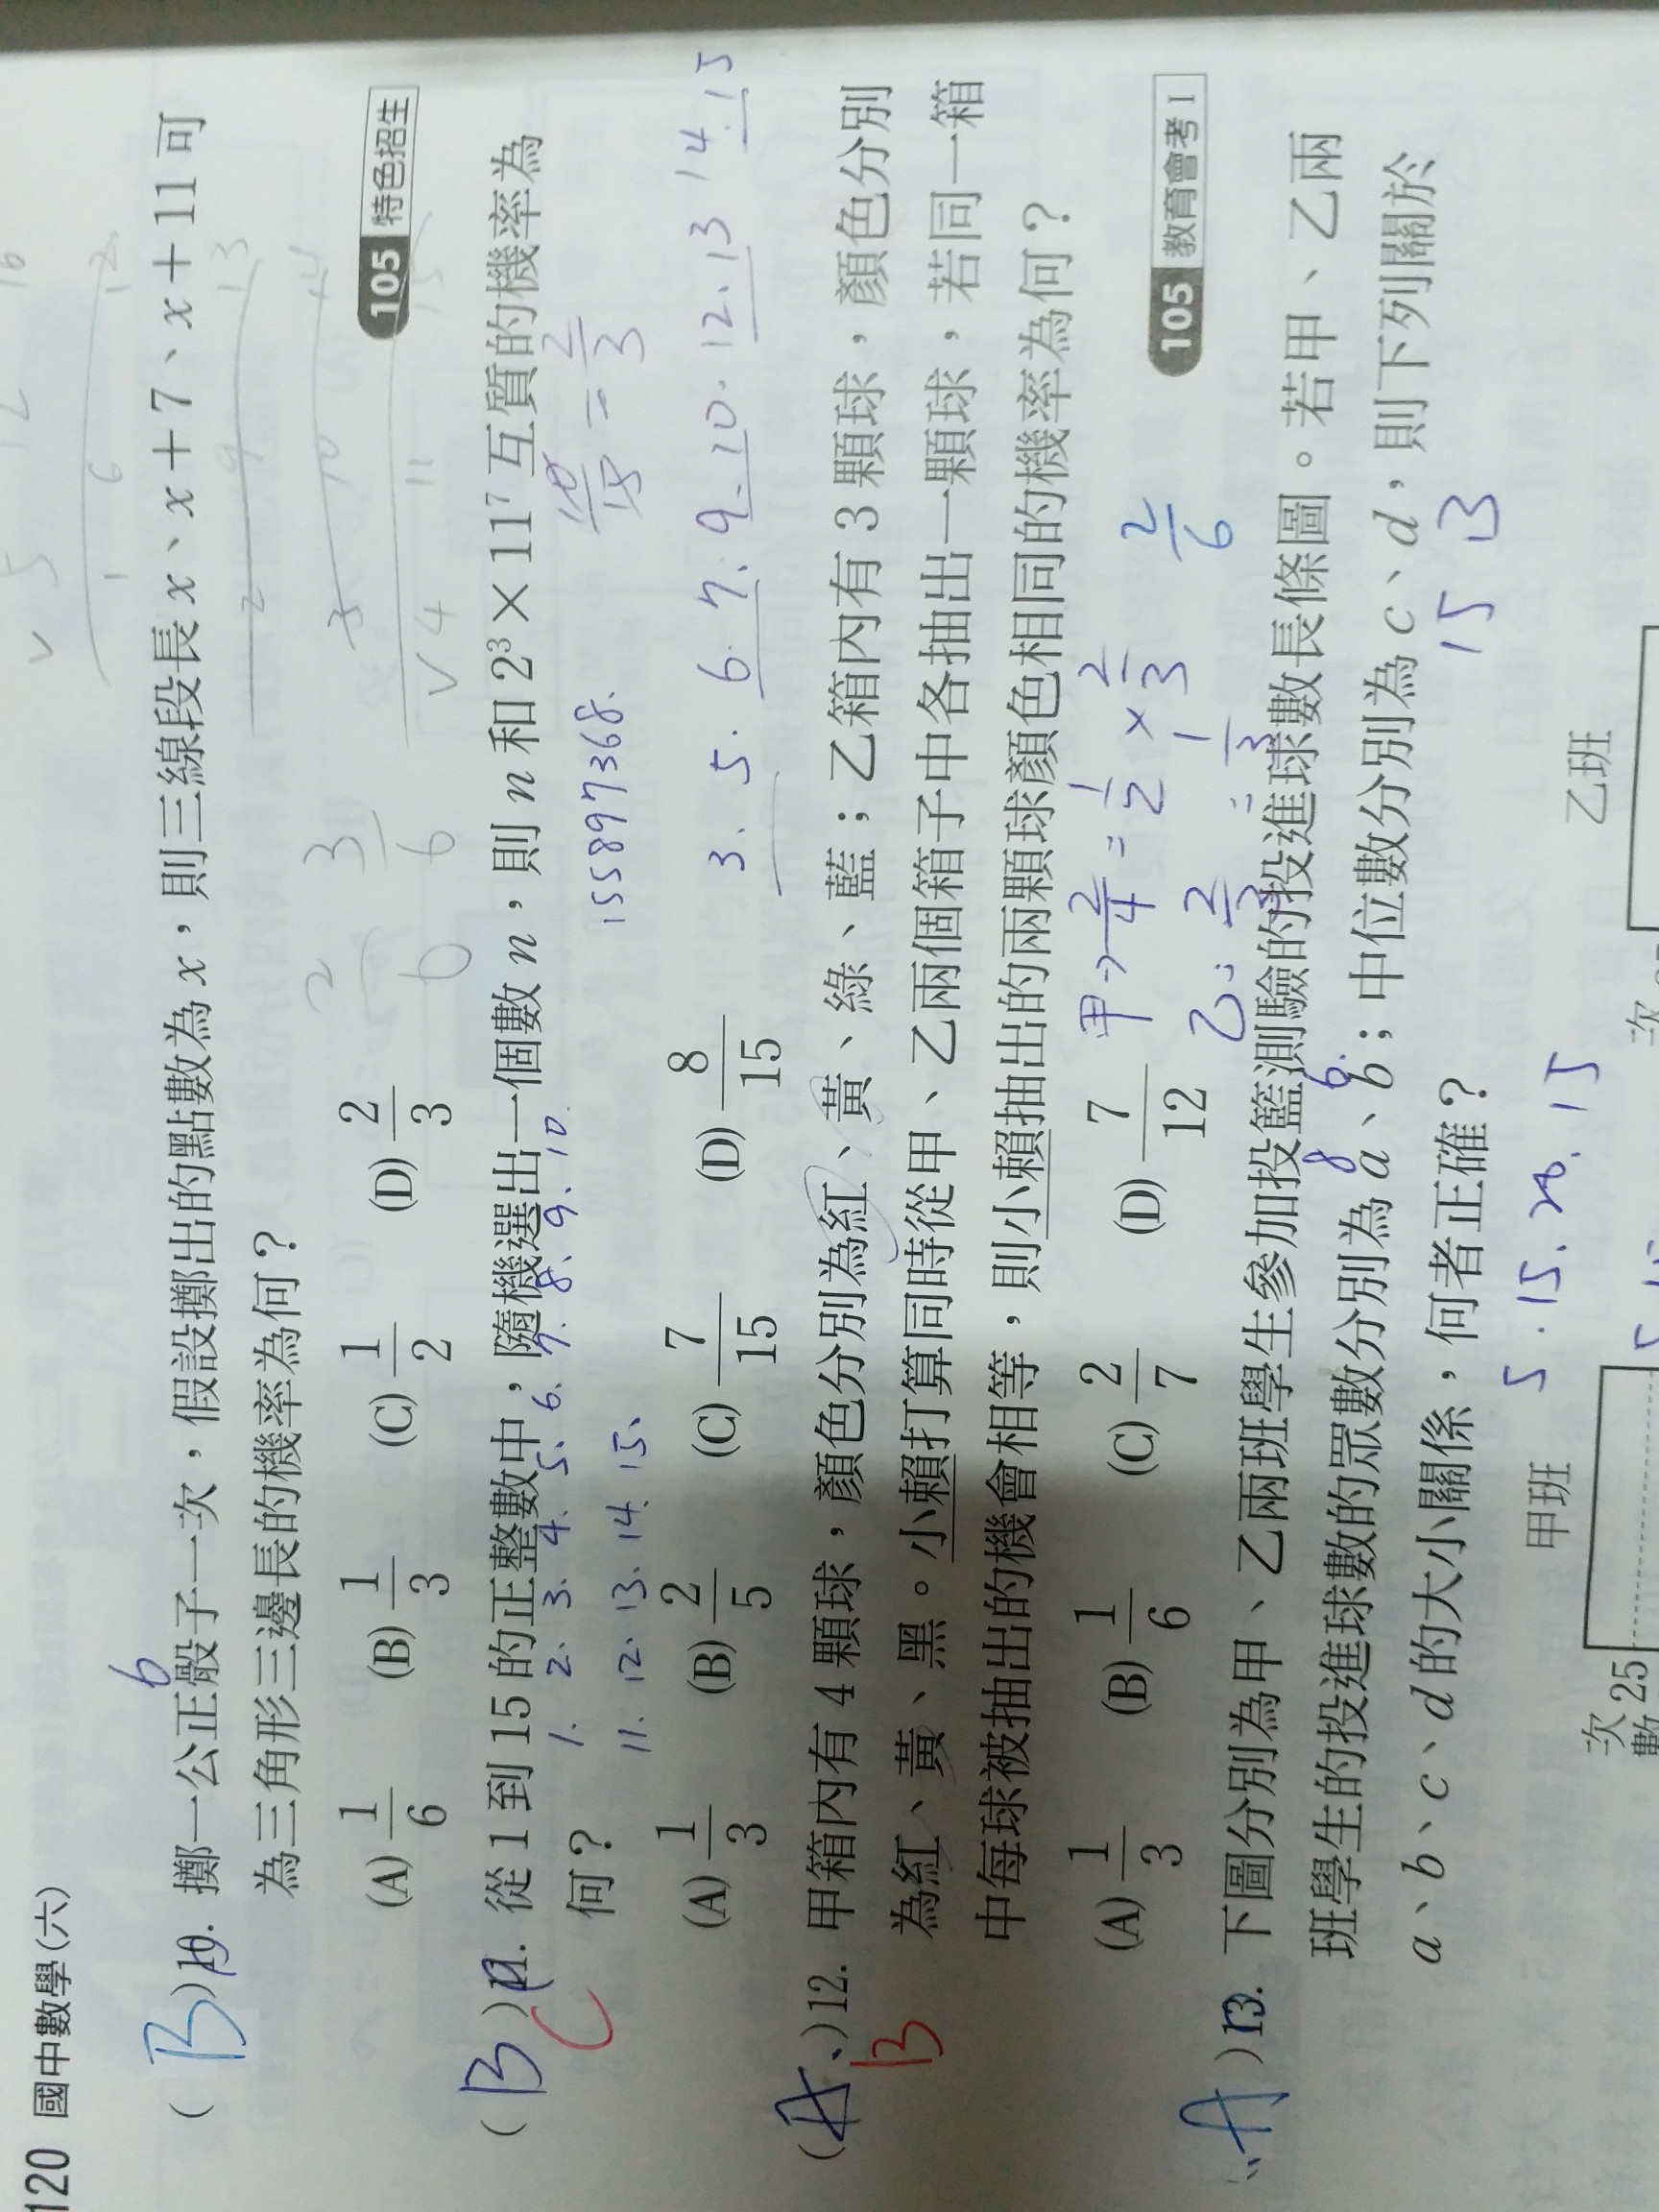 120 國中數學(六)
6
(B)10. 擲一公正骰子一次，假設擲出的點數為 x，則三線段長 x、x＋7、x＋11 可
為三角形三邊長的機率為何？
105 特色招生
(A) 1/6 (B) 1/3 (C) 1/2 (D) 2/3
(B)11. 從 1 到 15 的正整數中，隨機選出一個數 n，則 n 和 2³×11⁷ 互質的機率為
C
1. 2. 3. 4. 5. 6. 7. 8. 9. 10.
何？
11. 12. 13. 14. 15.
155897368.
10/15 = 2/3
(A) 1/3 (B) 2/5 (C) 7/15 (D) 8/15
3. 5. 6. 7. 9. 10. 12. 13 14. 15
(A)12. 甲箱內有 4 顆球，顏色分別為紅、黃、綠、藍；乙箱內有 3 顆球，顏色分別
B
為紅、黃、黑。小賴打算同時從甲、乙兩個箱子中各抽出一顆球，若同一箱
中每球被抽出的機會相等，則小賴抽出的兩顆球顏色相同的機率為何？
(A) 1/3 (B) 1/6 (C) 2/7 (D) 7/12
甲→ 2/4 = 1/2 × 2/3
2/6
乙: 2/3 = 1/3
105 教育會考 I
(A)13. 下圖分別為甲、乙兩班學生參加投籃測驗的投進球數長條圖。若甲、乙兩
8 6.
班學生的投進球數的眾數分別為 a、b；中位數分別為 c、d，則下列關於
15 13
a、b、c、d 的大小關係，何者正確？
5. 15. 20. 15
甲班
乙班
次
數
25
次